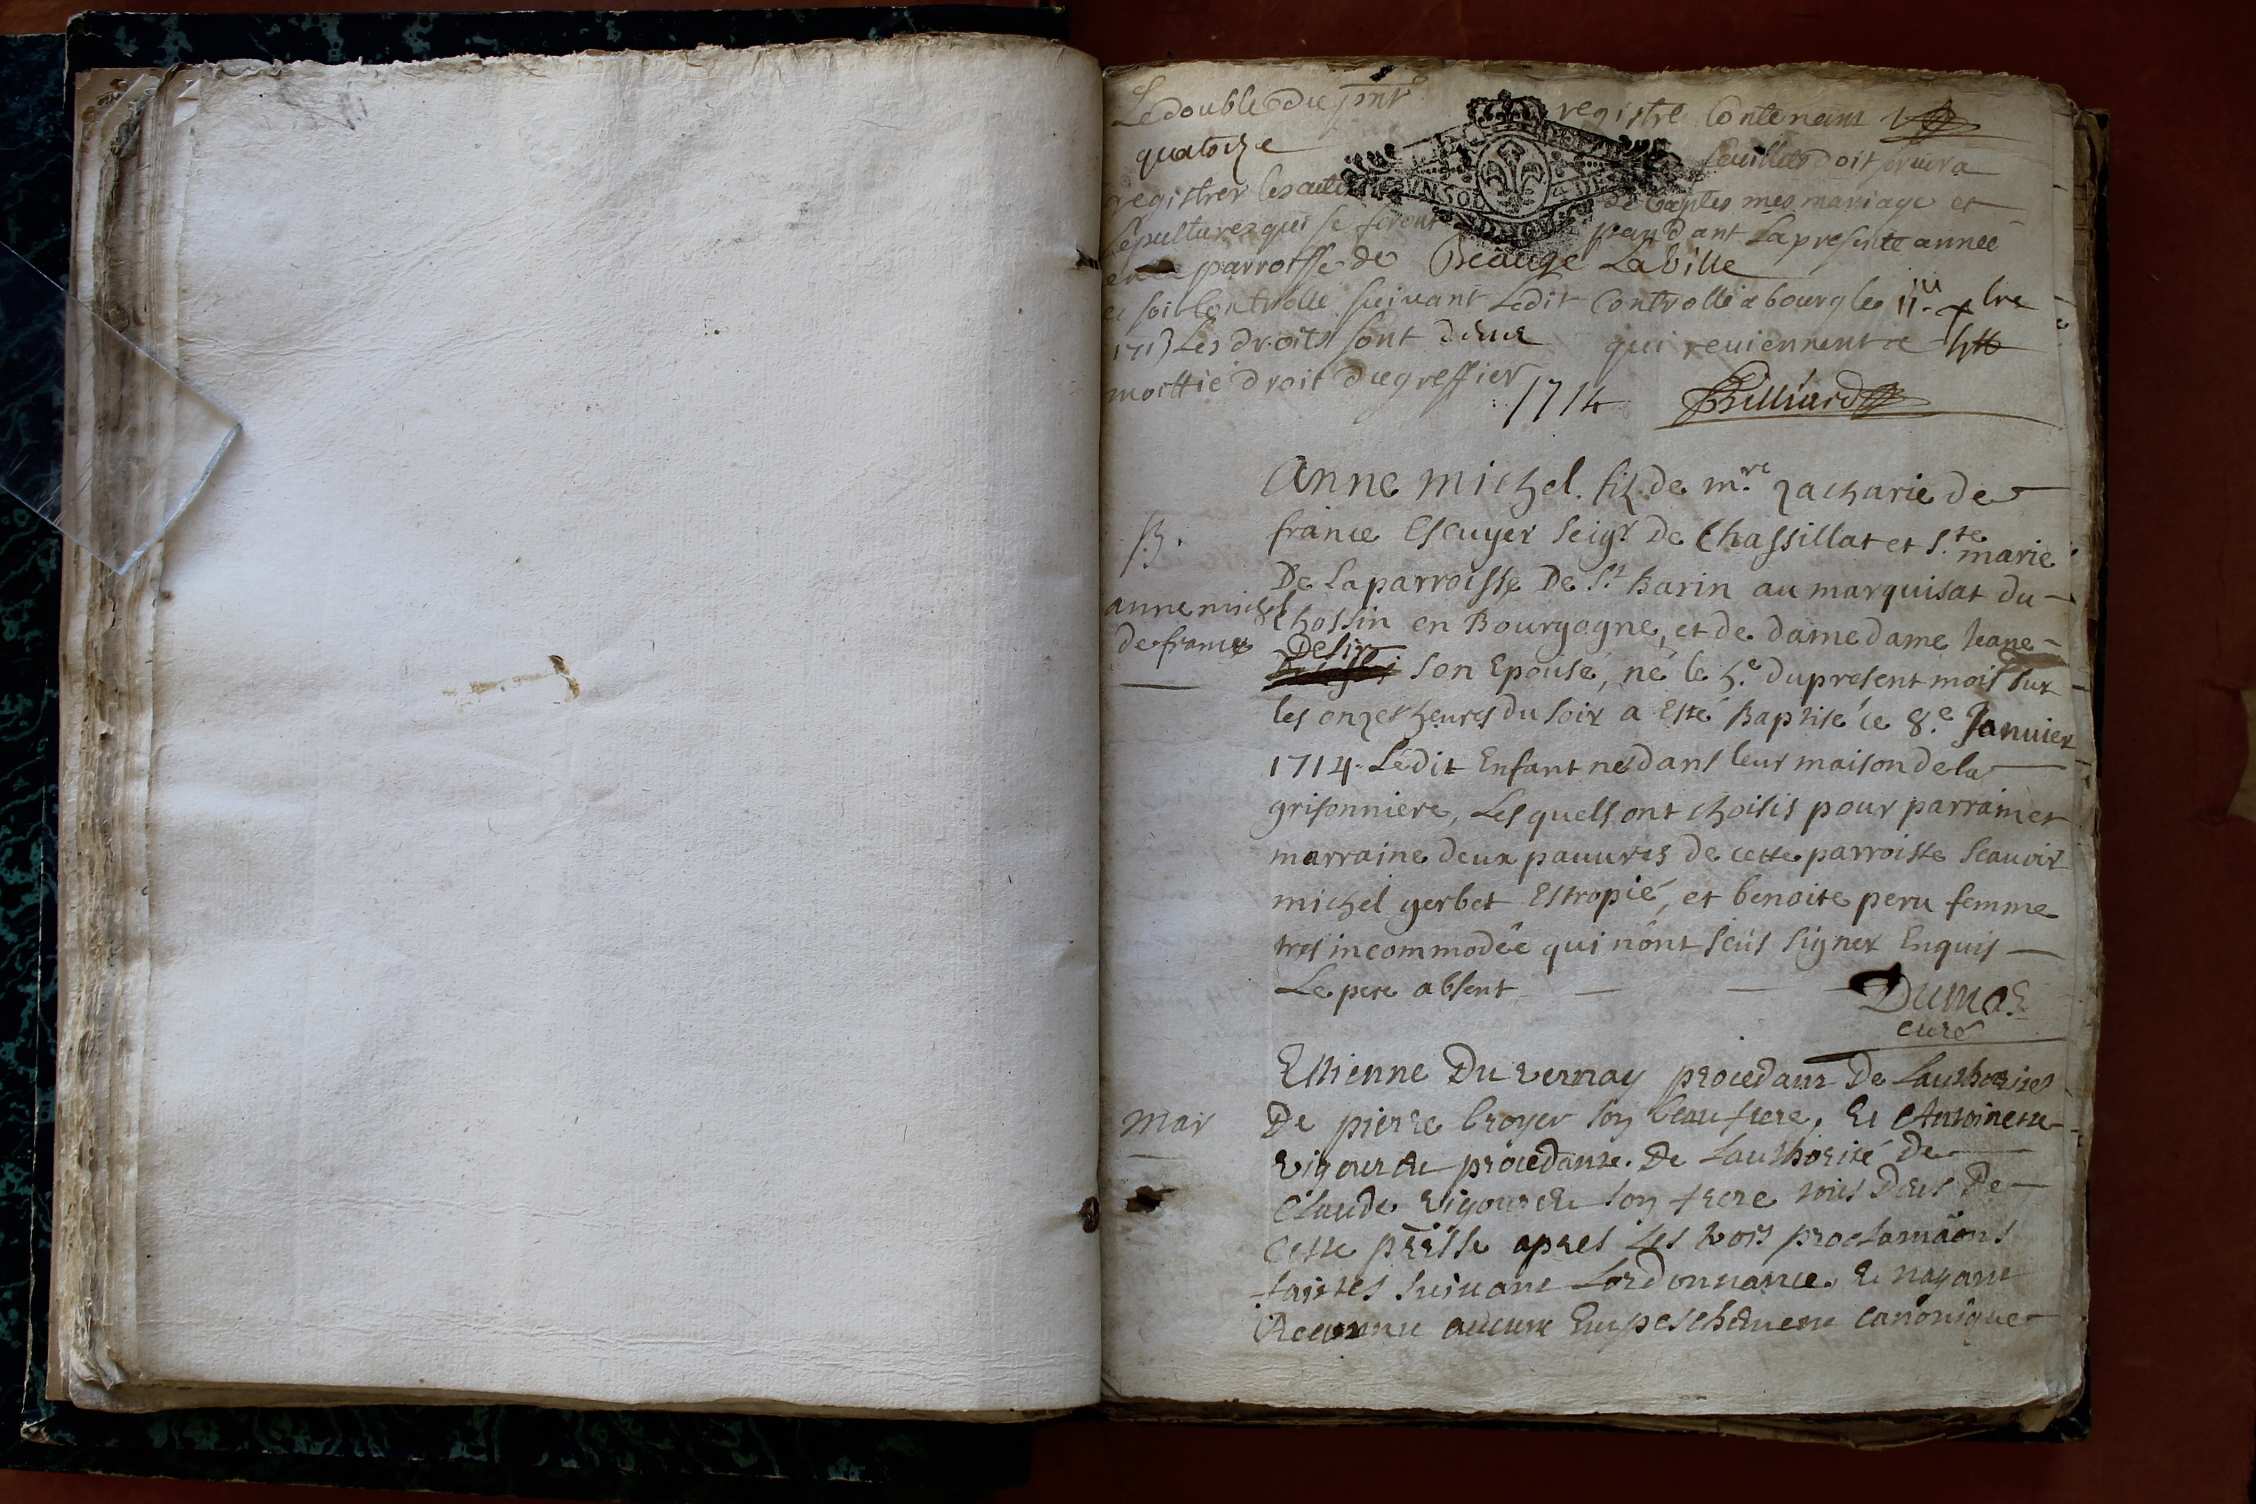 Le double du pñt registre Contenant
quatorze feuillets doit servir a
registrer les actes de baptes mes mariage et
sepultures qui se feront pandant La presente année
en parroisse de Beauge La Ville
et soit Controlle suivant Ledit Controllé a bourg le
1713 Les droits sont deux qui reviennent
moittié droit du greffier
1714 Billiard
Anne michel. fiz de m.re zacharie de
france Escuyer seigr De Chassillat et S.te marie
B.
De La parroisse De St Barin au marquisat du
anne michel
Chossin en Bourgogne, et de dame dame Jeane
de france
Desir
son Epouse, né le 5.e du present mois sur
les onzes heures du soir a Esté Baptisé ce 8.e Janvier
1714. Ledit Enfant né dans leur maison de la
grisonniere, Lesquels ont choisis pour parrain et
marraine deux pauvres de cette parroisse scauoir
michel gerbet Estropié, et benoite peru femme
tres incommodée qui nont sceus signer Enquis
Le pere absent
Dumas
curé
Estienne Duvernay procedant De Lauthorité
mar
De pierre broyer son beau frere, Et Antoinette
vigourdu procedante. De Lauthorité De
Claude vigourdu son frere tous Deus De
Cette prrsse apres Les trois proclamãons
faittes suivant Lordonnance. Et nayant
Reconnu aucun Empeschement canonique